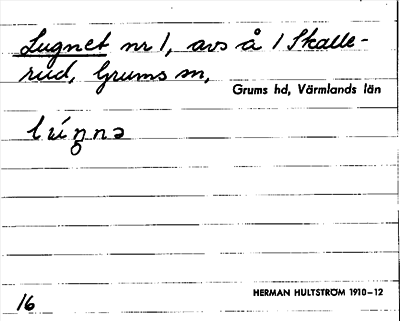 Lugnet nr 1, avs å 1 Skalle-
rud, Grums sn,
Grums hd, Värmlands län
16
HERMAN HULTSTRÖM 1910–12